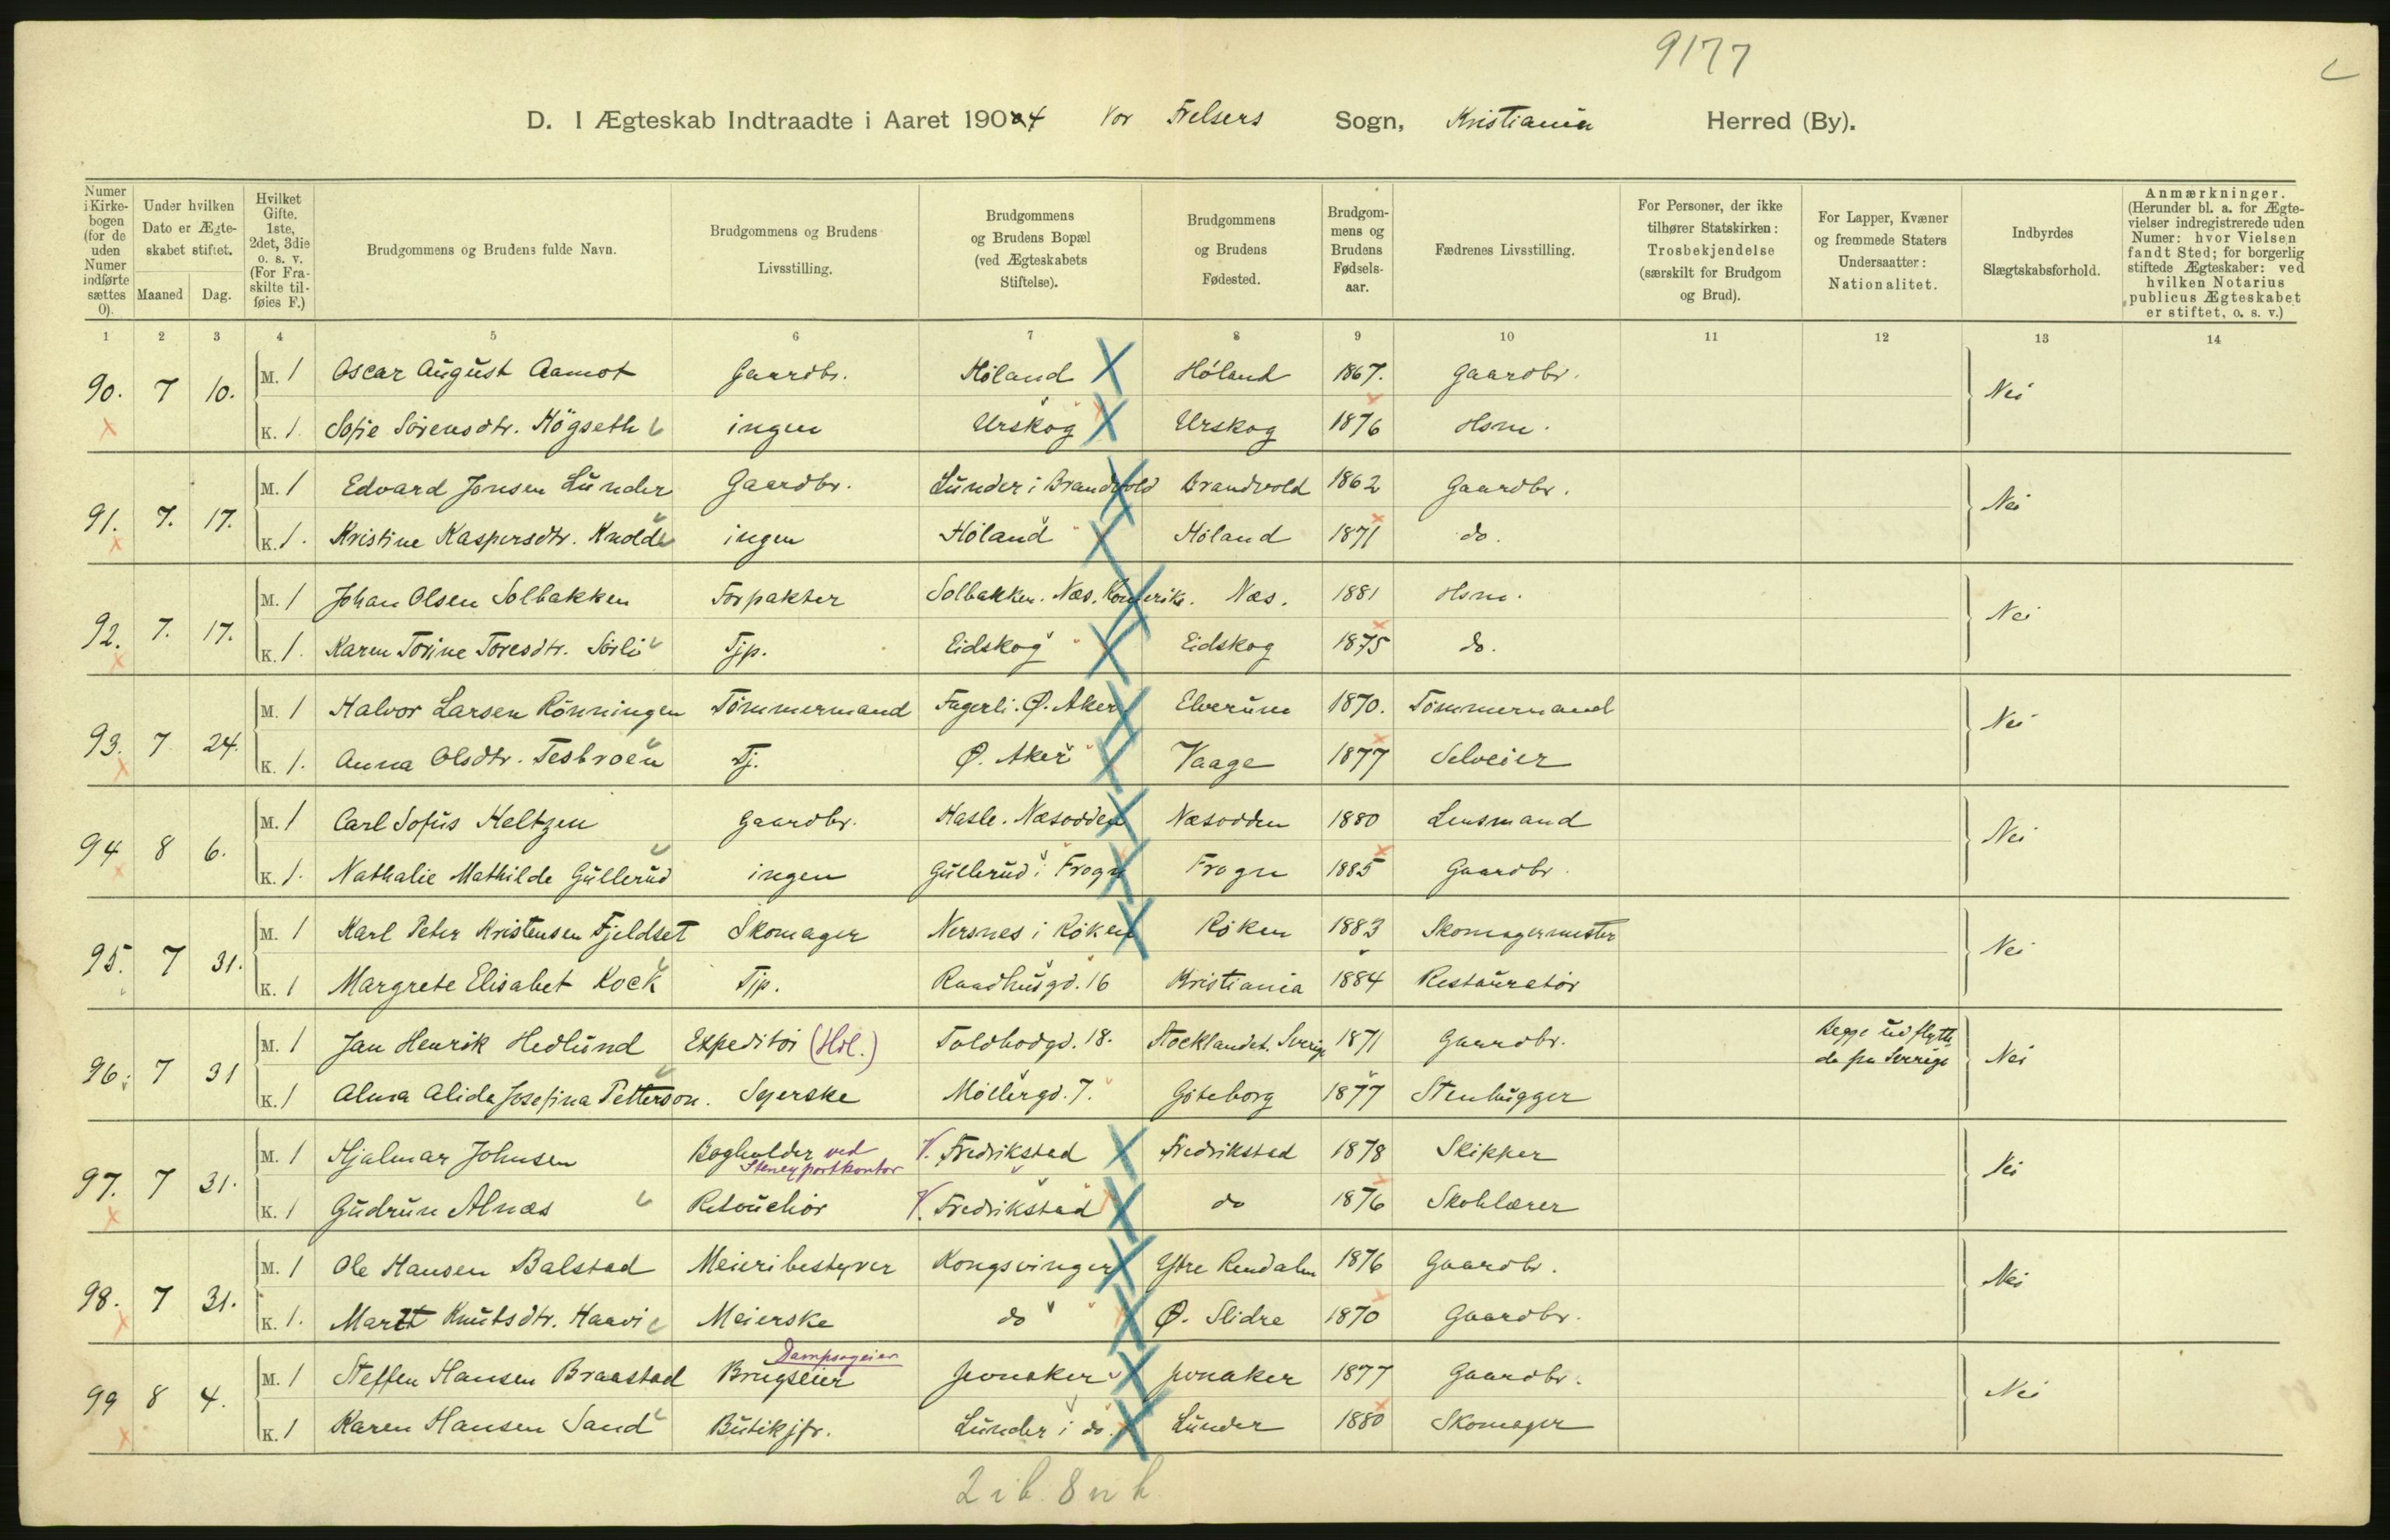 9177
D. I Ægteskab Indtraadte i Aaret 1904 Vor Frelsers Sogn, Kristiania Herred (By).
Numer i Kirkebogen (for de uden Numer indførte sættes 0).
Under hvilken Dato er Ægteskabet stiftet.
Maaned Dag.
Hvilket Gifte. 1ste, 2det, 3die o. s. v. (For Fraskilte tilføies F.)
Brudgommens og Brudens fulde Navn.
Brudgommens og Brudens Livsstilling.
Brudgommens og Brudens Bopæl (ved Ægteskabets Stiftelse).
Brudgommens og Brudens Fødested.
Brudgommens og Brudens Fødselsaar.
Fædrenes Livsstilling.
For Personer, der ikke tilhører Statskirken: Trosbekjendelse (særskilt for Brudgom og Brud).
For Lapper, Kvæner og fremmede Staters Undersaatter: Nationalitet.
Indbyrdes Slægtskabsforhold.
Anmærkninger. (Herunder bl. a. for Ægtevielser indregistrerede uden Numer: hvor Vielsen fandt Sted; for borgerlig stiftede Ægteskaber: ved hvilken Notarius publicus Ægteskabet er stiftet, o. s. v.)
1 2 3 4 5 6 7 8 9 10 11 12 13 14
90. 7 10. M. 1 Oscar August Aamot Gaardbr. Høland Høland 1867. Gaardbr. Nei
K. 1. Sofie Sørensdtr. Högseth ingen Urskog Urskog 1876 Hsm.
91. 7. 17. M. 1 Edvard Jonsen Lunder Gaardbr. Lunder i Brandvold Brandvold 1862 Gaardbr. Nei
K. 1. Kristine Kaspersdtr. Knold ingen Høland Høland 1871 do.
92. 7. 17. M. 1 Johan Olsen Solbakken Forpakter Solbakken. Næs. Romerike. Næs. 1881 Hsm. Nei
K. 1. Karen Torine Toresdtr. Sörli Tjp. Eidskog Eidskog 1875 do.
93. 7 24. M. 1 Halvor Larsen Rönningen Tömmermand Fagerli. Ø. Aker Elverum 1870. Tömmermand Nei
K. 1. Anna Olsdtr. Tesbroen Tj. Ø. Aker Vaage 1877 Selveier
94 8 6. M. 1 Carl Sofus Keltzen Gaardbr. Hasle. Næsodden Næsodden 1880 Lensmand Nei
K. 1. Nathalie Mathilde Gullerud ingen Gullerud i Frogn Frogn 1885 Gaardbr.
95. 7 31. M. 1 Karl Peter Kristensen Fjeldset Skomager Nersnes i Røken Røken 1883 Skomagermester Nei
K. 1 Margrete Elisabet Kock Tjp. Raadhusgd. 16 Kristiania 1884 Restauratör
96. 7 31 M. 1 Jan Henrik Hedlund Expeditör (Hdl.) Toldbodgd. 18. Stocklandet. Sverige 1871 Gaardbr. Begge udflyttede fra Sverige Nei
K. 1 Alma Alida Josefina Petterson. Syerske Möllergd. 7. Göteborg 1877 Stenhugger
97. 7 31. M. 1 Hjalmar Johnsen Bogholder ved Stenexportkontor V. Fredrikstad Fredrikstad 1878 Skipper Nei
K. 1 Gudrun Alnæs Retouchör V. Fredrikstad do 1876 Skolelærer
98. 7 31. M. 1 Ole Hansen Balstad Meieribestyrer Kongsvinger Ytre Rendalen 1876 Gaardbr. Nei
K. 1. Marit Knutsdtr. Haavi Meierske do Ø. Slidre 1870 Gaardbr.
99 8 4. M. 1 Steffen Hansen Braastad Brugseier Dampsageier Jevnaker Jevnaker 1877 Gaardbr. Nei
K. 1 Karen Hansen Sand Butikjfr. Lunder i do. Lunder 1880 Skomager
2 i b. 8 u b.